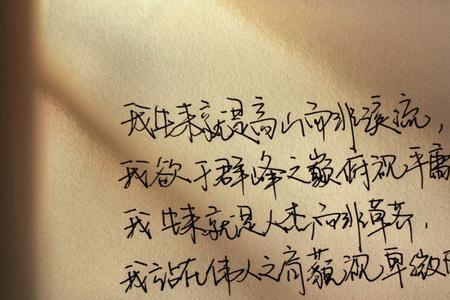 我生来就是高山而非溪流，
我欲于群峰之巅俯视平庸
我生来就是人杰而非草芥，
我站在伟人之肩藐视卑微